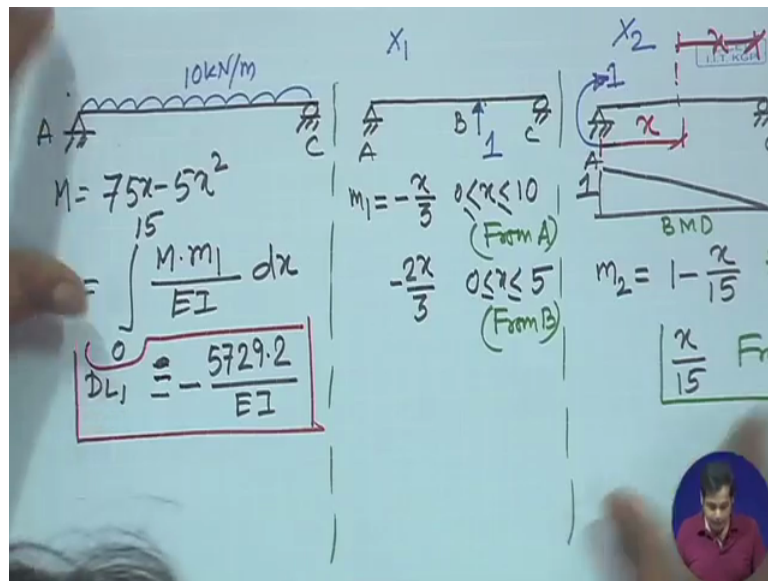 10kN/m
A
C
M = 75x - 5x²
15
= ∫ M·m₁ / EI dx
0
DL₁ = - 5729.2 / EI
X₁
A
B
C
1
m₁ = - x/3 0≤x≤10
(From A)
- 2x/3 0≤x≤5
(From B)
X₂
x
I.I.T. KGP
1
x
A
1
BMD
m₂ = 1 - x/15
x/15